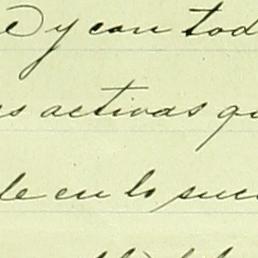 y con tod
s activas qu
le en lo suce